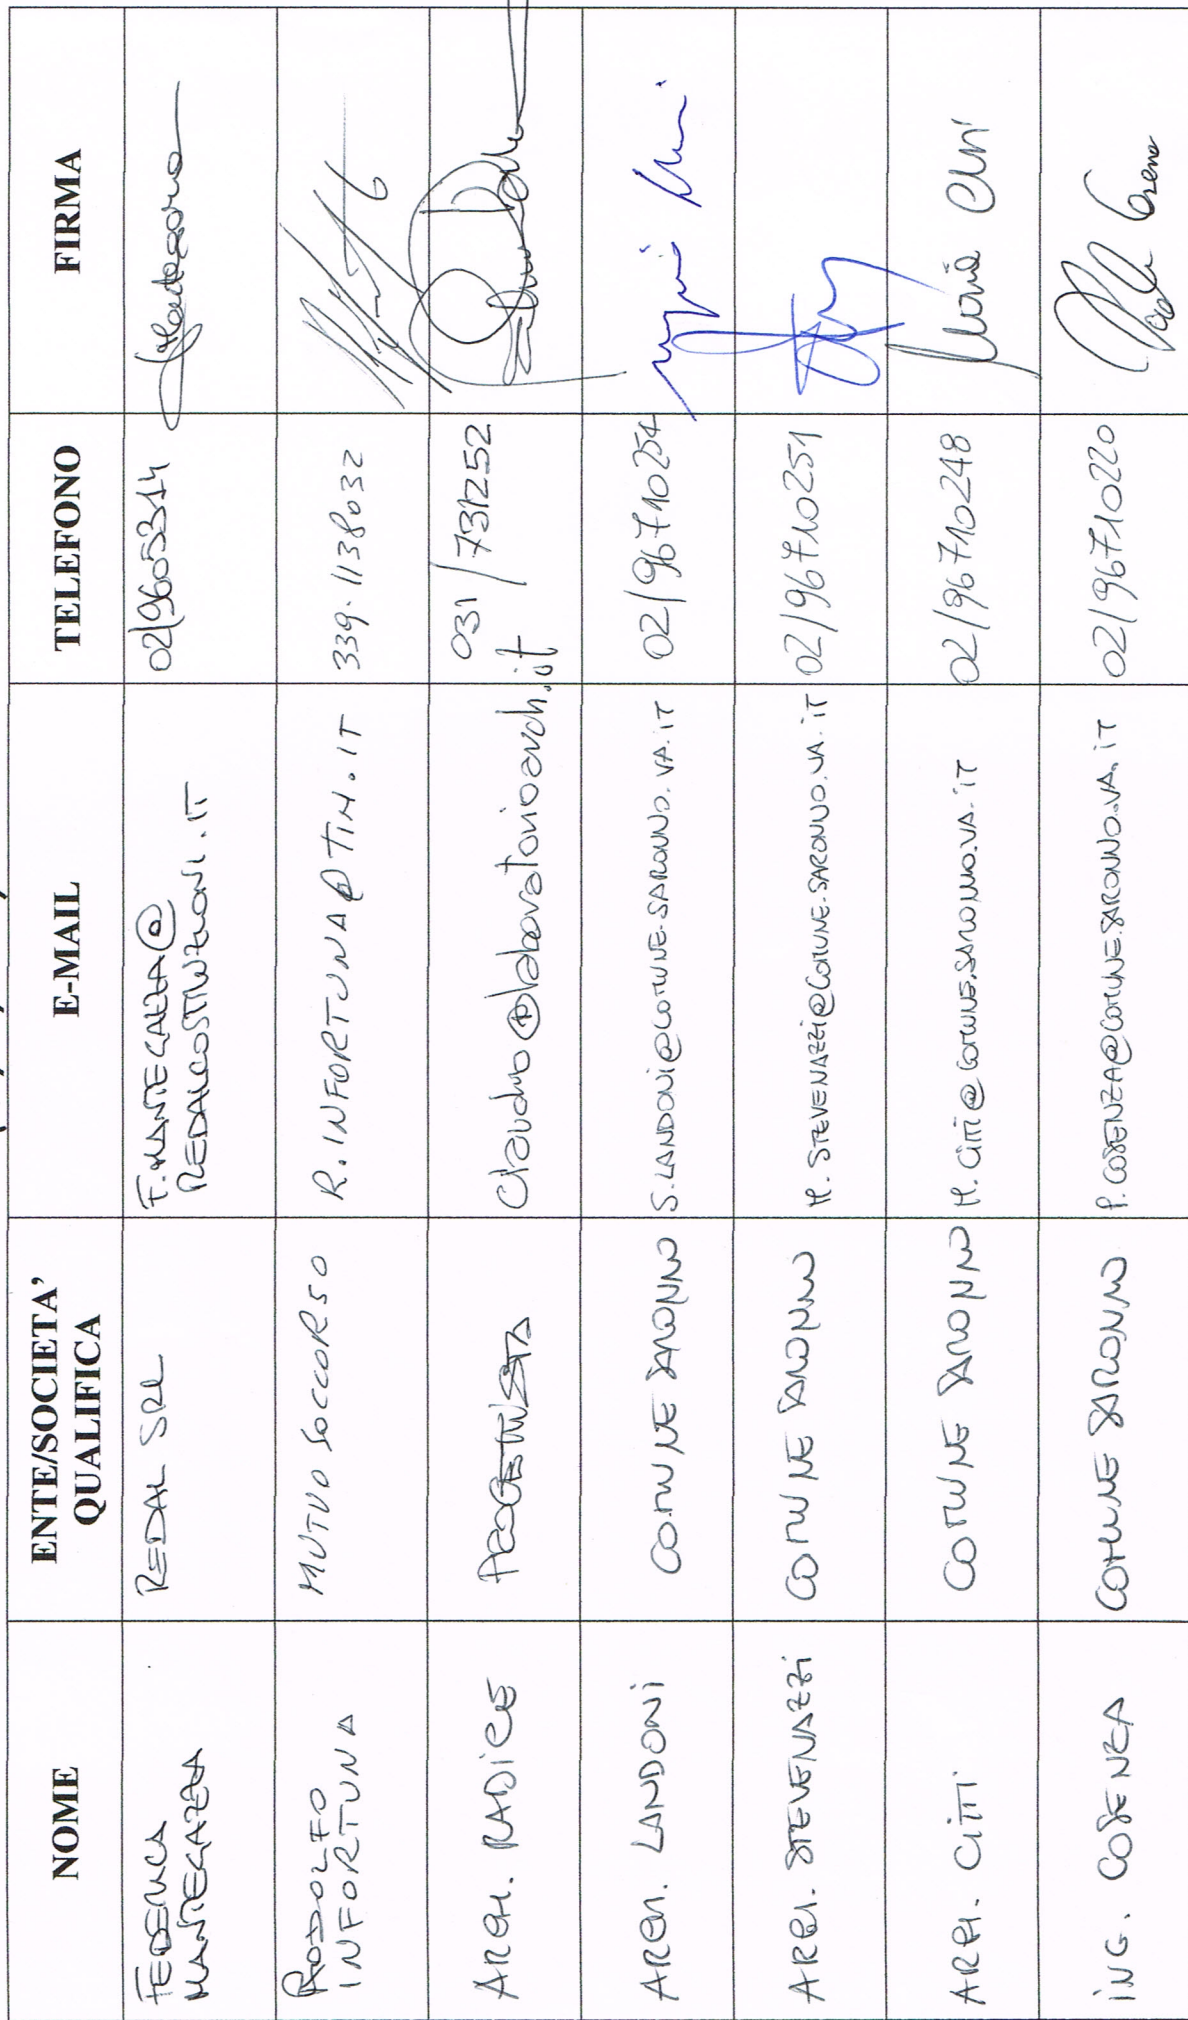 NOME
ENTE/SOCIETA'
QUALIFICA
E-MAIL
TELEFONO
FIRMA
FEDERICA
MANTEGAZZA
REDAL SRL
F.MANTEGAZZA@
REDALCOSTRUZIONI.IT
02/9605314
RODOLFO
INFORTUNA
MUTUO SOCCORSO
R.INFORTUNA@TIN.IT
339.1138032
ARCH. RADICE
PROGETTISTA
claudio@laboratorioarch.it
031/731252
ARCH. LANDONI
COMUNE SARONNO
S.LANDONI@COMUNE.SARONNO.VA.IT
02/96710254
ARCH. STEVENAZZI
COMUNE SARONNO
M.STEVENAZZI@COMUNE.SARONNO.VA.IT
02/96710251
ARCH. CITTI
COMUNE SARONNO
M.CITTI@COMUNE.SARONNO.VA.IT
02/96710248
ING. COSENZA
COMUNE SARONNO
P.COSENZA@COMUNE.SARONNO.VA.IT
02/96710220